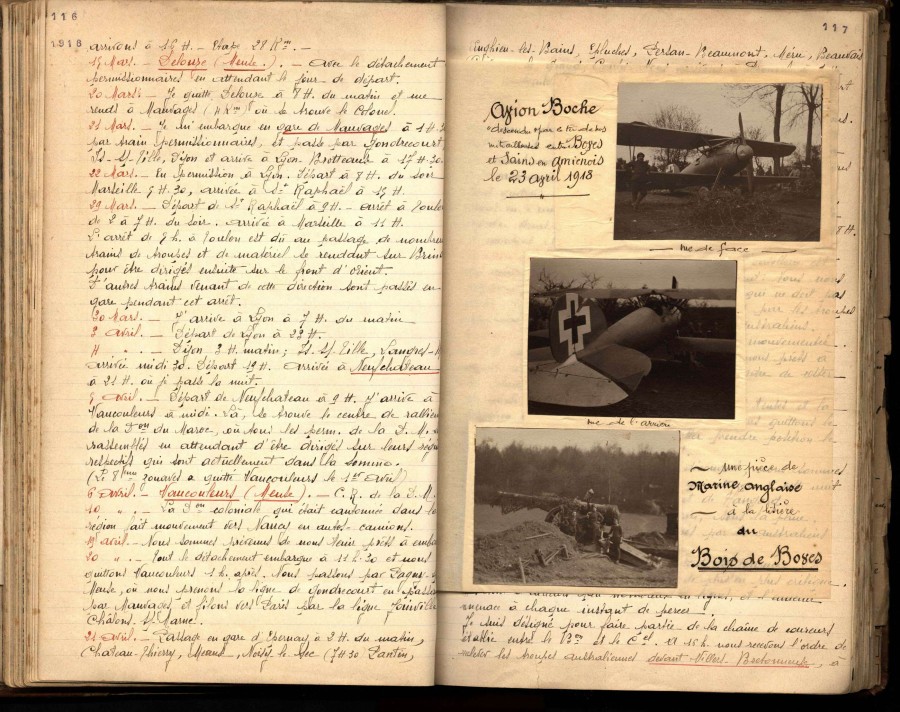 116
1918
arrivons à 16 H. - Etape 28 Km. -
19 Mars. - Delouze (Meuse.). - Avec le détachement
permissionnaires en attendant le jour de départ.
20 Mars. - Je quitte Delouze à 8 H. du matin et me
rends à Mauvages (4 Km) où se trouve le Colonel.
21 Mars. - Je m'embarque en gare de Mauvages à 1 H.
par train permissionnaires, et passe par Gondrecourt
Is-s/-Tille, Dijon et arrive à Lyon Brotteaux à 17 H 30.
22 Mars. - En permission à Lyon. Départ à 8 H. du soir
Marseille 5 H. 30, arrivée à St Raphaël à 15 H.
29 Mars. - Départ de St Raphaël à 9 H. - arrêt à Toulon
de 2 à 7 H. du soir. Arrivée à Marseille à 11 H.
L'arrêt de 5 h. à Toulon est dû au passage de nombreux
trains de troupes et de matériel se rendant sur
pour être dirigés ensuite sur le front d'Orient.
D'autres trains venant de cette direction sont passés en
gare pendant cet arrêt.
30 Mars. - J'arrive à Lyon à 7 H. du matin
3 Avril. - Départ de Lyon à 22 H.
4 " . - Dijon 2 H. matin ; Is-s/-Tille, Langres -
arrivée midi 30. Départ 19 H. arrivée à Neufchateau
à 21 H. où je passe la nuit.
5 Avril. - Départ de Neufchateau à 9 H. J'arrive à
Vaucouleurs à midi. Là, se trouve le centre de ralliement
de la Don du Maroc, où tous les perm. de la D. M.
rassemblés en attendant d'être dirigés sur leurs
respectifs qui sont actuellement dans la Somme.
(Le 8ème zouaves a quitté Vaucouleurs le 1er Avril)
6 Avril. - Vaucouleurs (Meuse). - C. R. de la D. M.
10 " . - La Don coloniale qui était cantonnée dans la
région fait mouvement vers Nancy en autos-camions.
19 Avril. - Nous sommes prévenus de nous tenir prêts à
20 " . - Tout le détachement embarque à 11 h. 30 et nous
quittons Vaucouleurs 1 h. après. Nous passons par Pagny-s/
Meuse, où nous prenons la ligne de Gondrecourt en passant
par Mauvages, et filons vers Paris par la ligne Joinville
Châlons s/ Marne.
21 Avril. - Passage en gare d'Epernay à 3 H. du matin,
Château-Thierry, Meaux, Noisy le Sec (7 H 30 Pantin,
117
Enghien-les-Bains, Epluches, Persan-Beaumont, Méru, Beauvais
Avion Boche
descendu par le tir de nos
mitrailleuses entre Boves
et Sains en Amienois
le 23 Avril 1918
vue de face
vue de l'arrière
une pièce de
Marine anglaise
à la lisière
du
Bois de Boves
menace à chaque instant de percer.
Je suis désigné pour faire partie de la chaîne de coureurs
établie entre le Bon et le Cel. A 15 h. nous recevons l'ordre de
relever les troupes australiennes devant Villers-Bretonneux, à